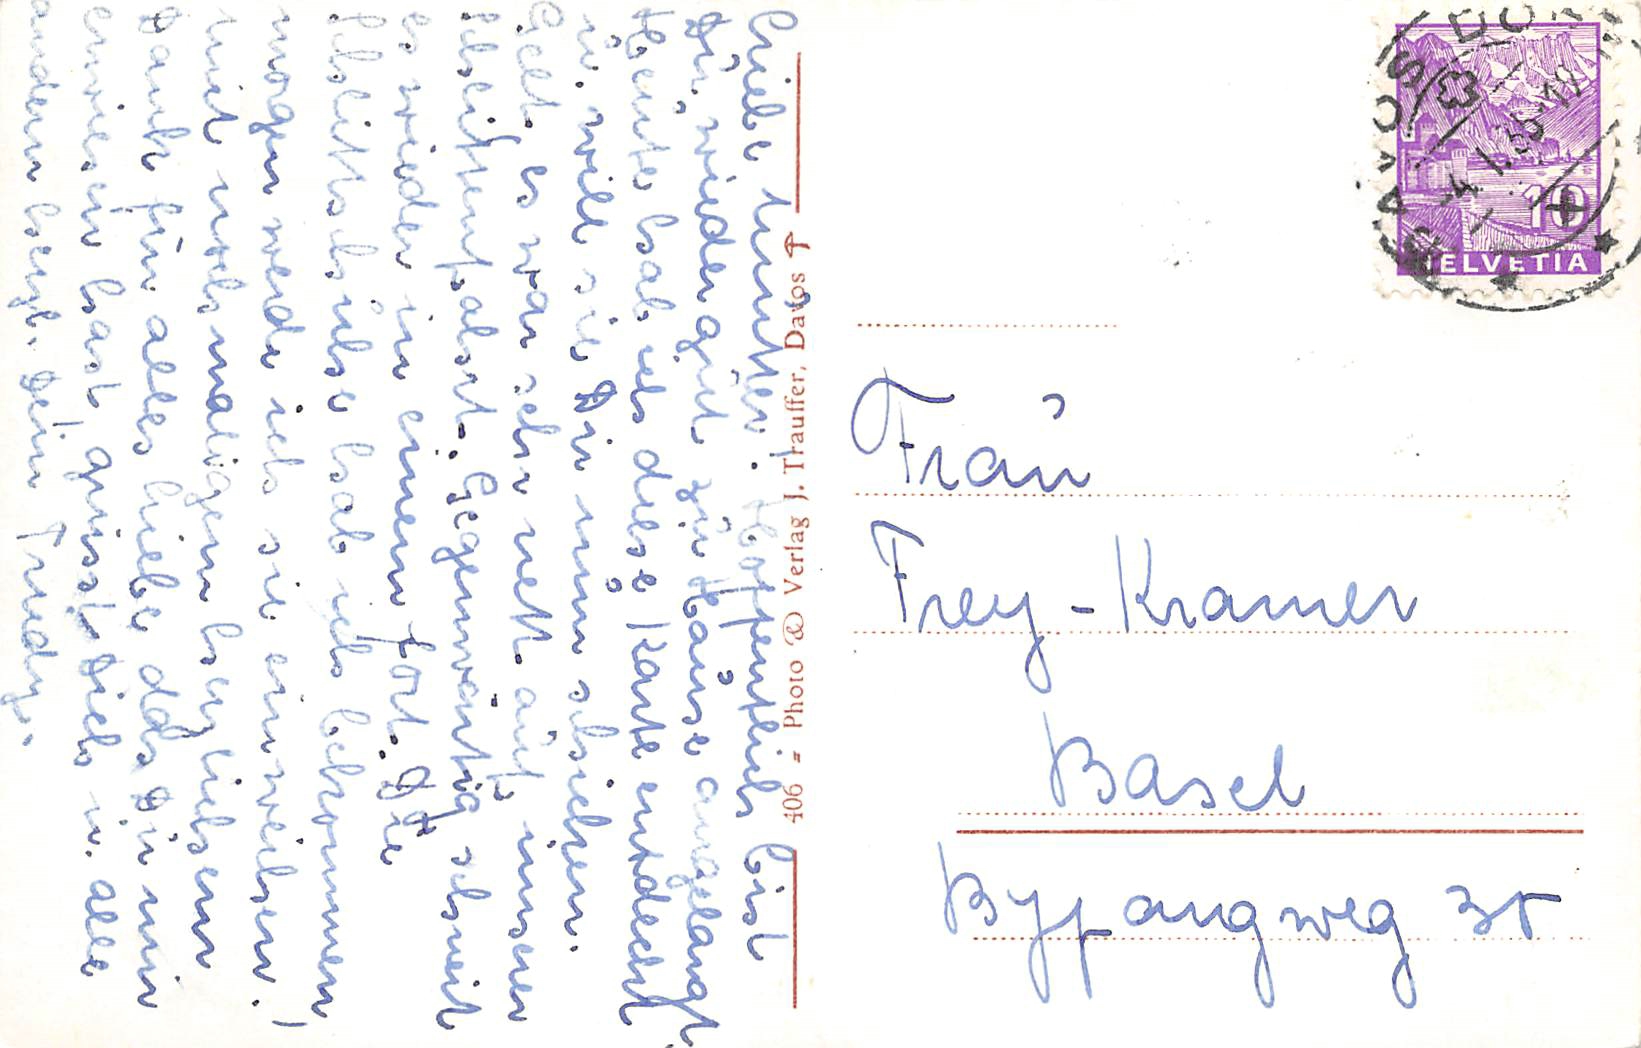 Liebe Mutter! Hoffentlich bist
Du wieder gut zu Hause angelangt.
Heute hab ich diese Karte entdeckt
u. will sie Dir nun schicken.
Gelt, es war sehr nett auf unserer
Schlittenfahrt. Gegenwärtig schneit
es wieder in einem fort. Die
Schlittschuhe hab ich bekommen,
morgen werde ich sie einweihen.
Mit nochmaligem herzlichem
Dank für alles Liebe das Du mir
erwiesen hast, grüsst Dich u. alle
andern herzl. Dein Trudy.
406 - Photo & Verlag J. Trauffer, Davos
DAVOS DORF
-4.1.35-12
10
HELVETIA
Frau
Frey-Kramer
Basel
Byfangweg 35